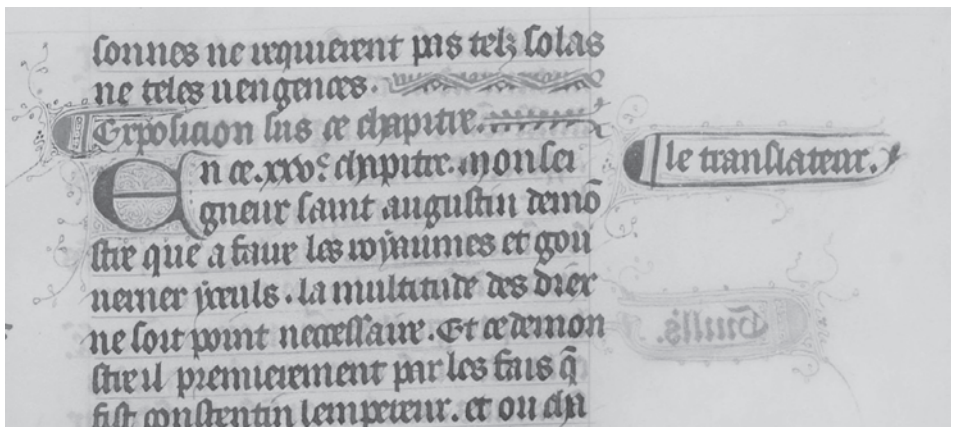 sonnes ne requierent pas telz solas
ne teles uengences.
Exposicion sus ce chapitre.
En ce .xxv.e chapitre. monsei
gneur saint augustin demō
stre que a faire les royaumes et gou
uerner yceuls. la multitude des diex
ne soit point neccessaire. Et ce demon
stre il premierement par les fais q̄
fist constentin lempereur. et ou cha
le translateur.